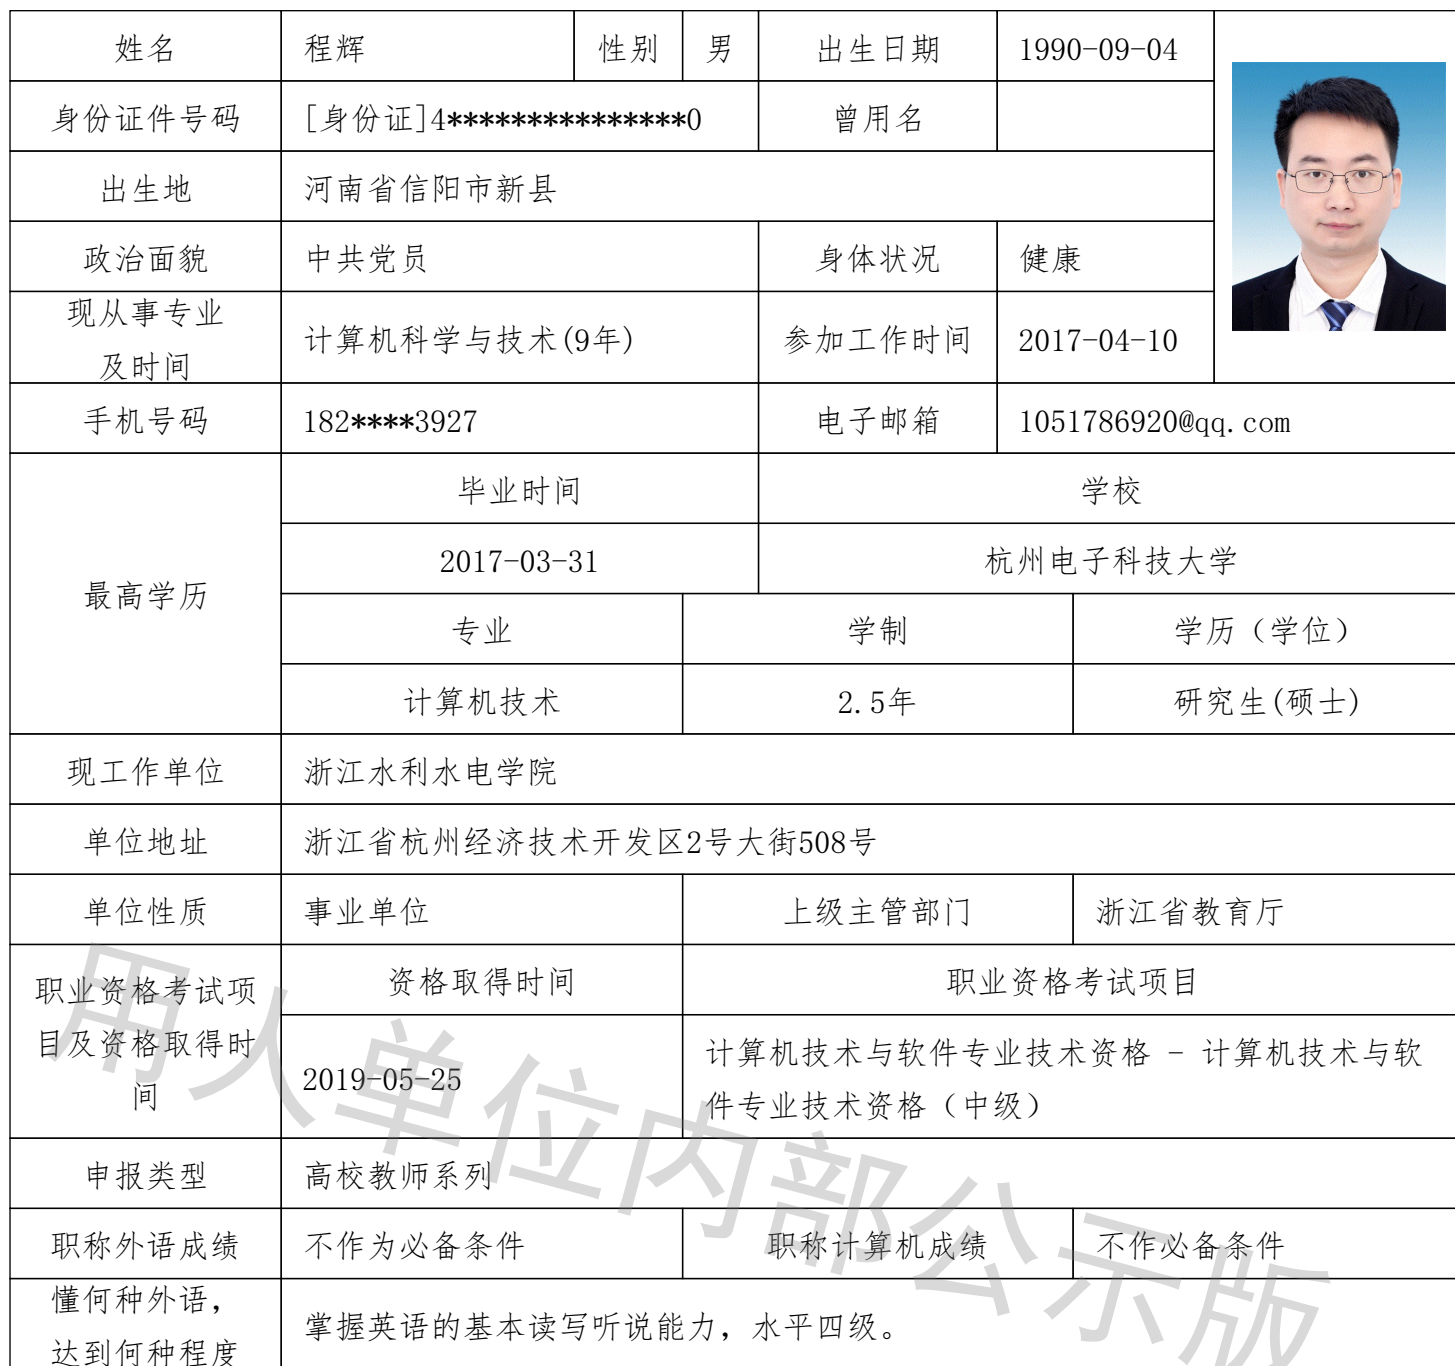 姓名 程辉 性别 男 出生日期 1990-09-04
身份证件号码 [身份证]4***************0 曾用名
出生地 河南省信阳市新县
政治面貌 中共党员 身体状况 健康
现从事专业
及时间 计算机科学与技术(9年) 参加工作时间 2017-04-10
手机号码 182****3927 电子邮箱 1051786920@qq.com
最高学历
毕业时间 学校
2017-03-31 杭州电子科技大学
专业 学制 学历（学位）
计算机技术 2.5年 研究生(硕士)
现工作单位 浙江水利水电学院
单位地址 浙江省杭州经济技术开发区2号大街508号
单位性质 事业单位 上级主管部门 浙江省教育厅
职业资格考试项
目及资格取得时
间
资格取得时间 职业资格考试项目
2019-05-25
计算机技术与软件专业技术资格 - 计算机技术与软
件专业技术资格（中级）
申报类型 高校教师系列
职称外语成绩 不作为必备条件 职称计算机成绩 不作必备条件
懂何种外语，
达到何种程度 掌握英语的基本读写听说能力，水平四级。
用人单位内部公示版